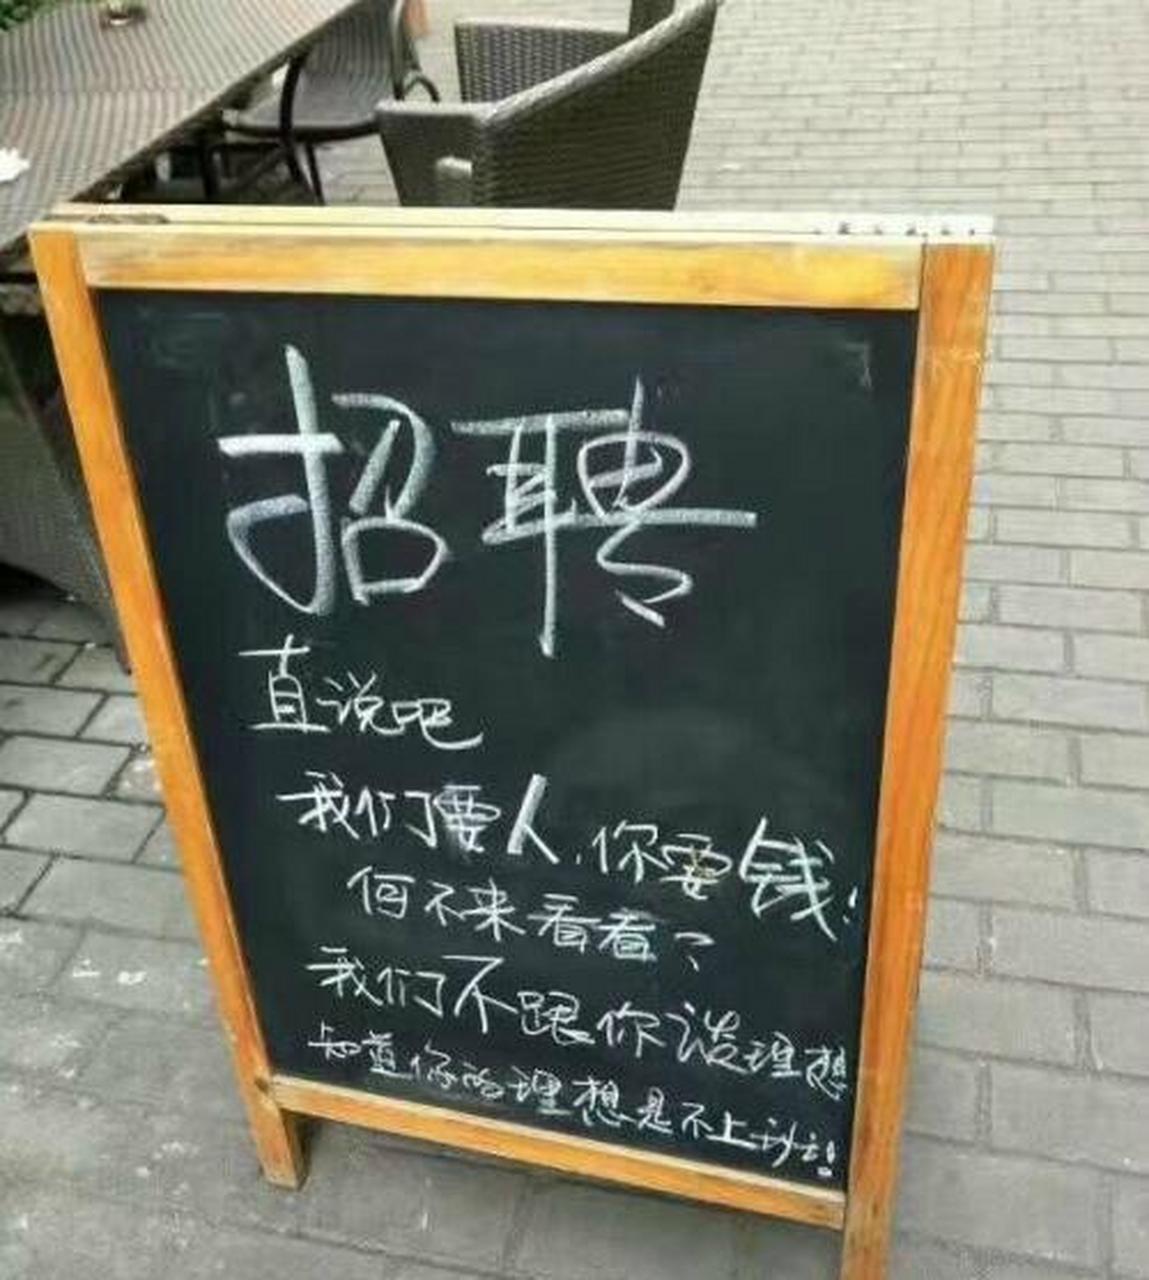 招聘
直说吧
我们要人，你要钱！
何不来看看？
我们不跟你谈理想
知道你的理想是不上班！